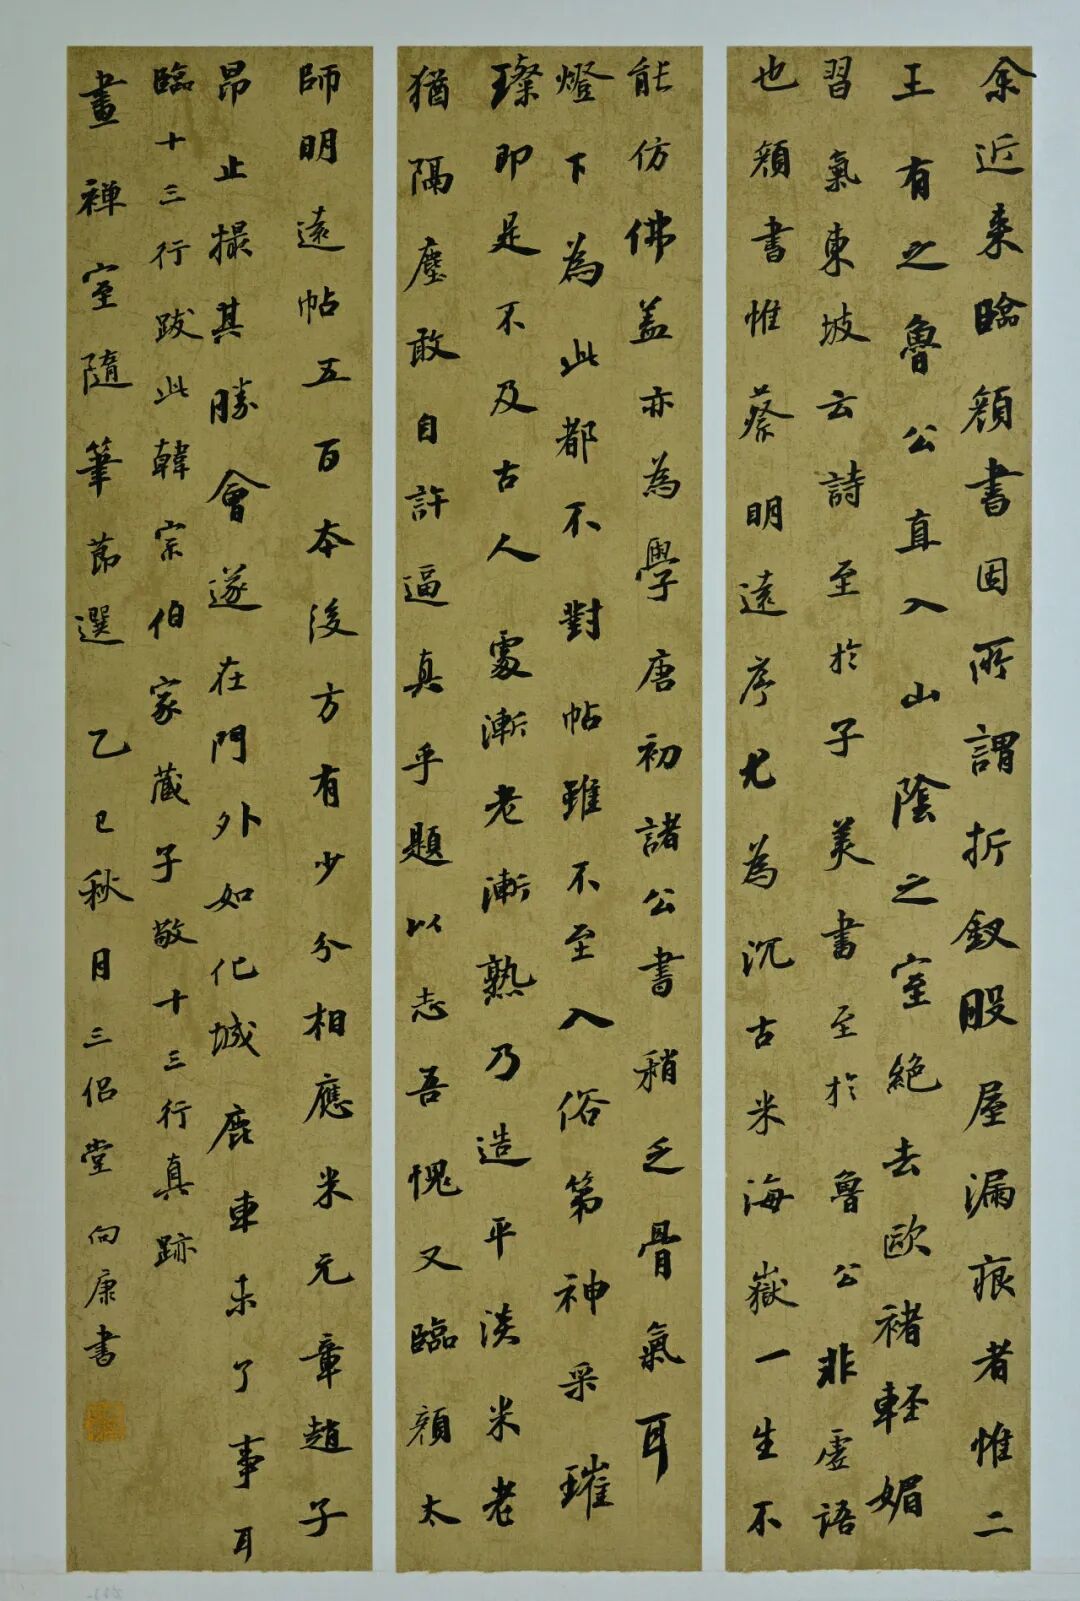 余近来臨顏書因所謂折釵股屋漏痕者惟二
王有之魯公直入山陰之室絕去歐褚輕媚
習氣東坡云詩至於子美書至於魯公非虛語
也顏書惟蔡明遠序尤為沉古米海嶽一生不
能仿佛蓋亦為學唐初諸公書稍乏骨氣耳
燈下為此都不對帖雖不至入俗第神采璀
璨即是不及古人處漸老漸熟乃造平淡米老
猶隔塵敢自許逼真乎題以志吾愧又臨顏太
師明遠帖五百本後方有少分相應米元章趙子
昂止撮其勝會遂在門外如化城鹿車未了事耳
臨十三行跋此韓宗伯家藏子敬十三行真跡
畫禅室隨筆節選 乙巳秋月三侣堂向康書